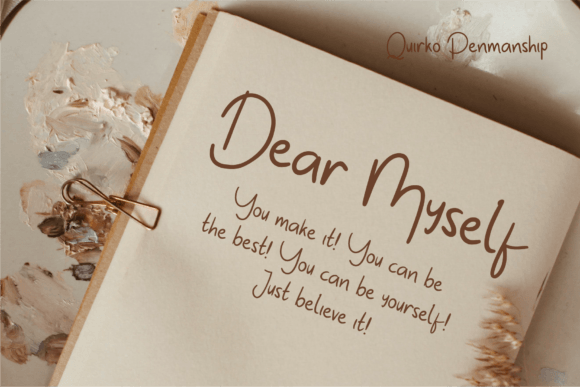 Quirko Penmanship
Dear Myself
You make it! You can be
the best! You can be yourself!
Just believe it!